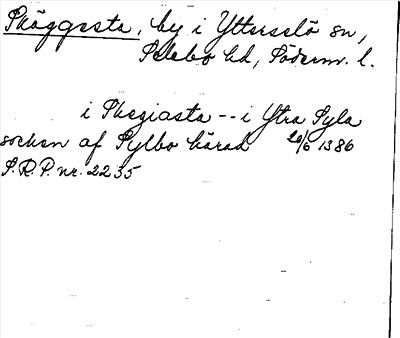 Skäggesta, by i Ytterselö sn,
Selebo hd, Söderm. l.
i Skegiasta -- i Ytra Syla
socken af Sylbo härad 20/6 1386
S.R.P. nr. 2235